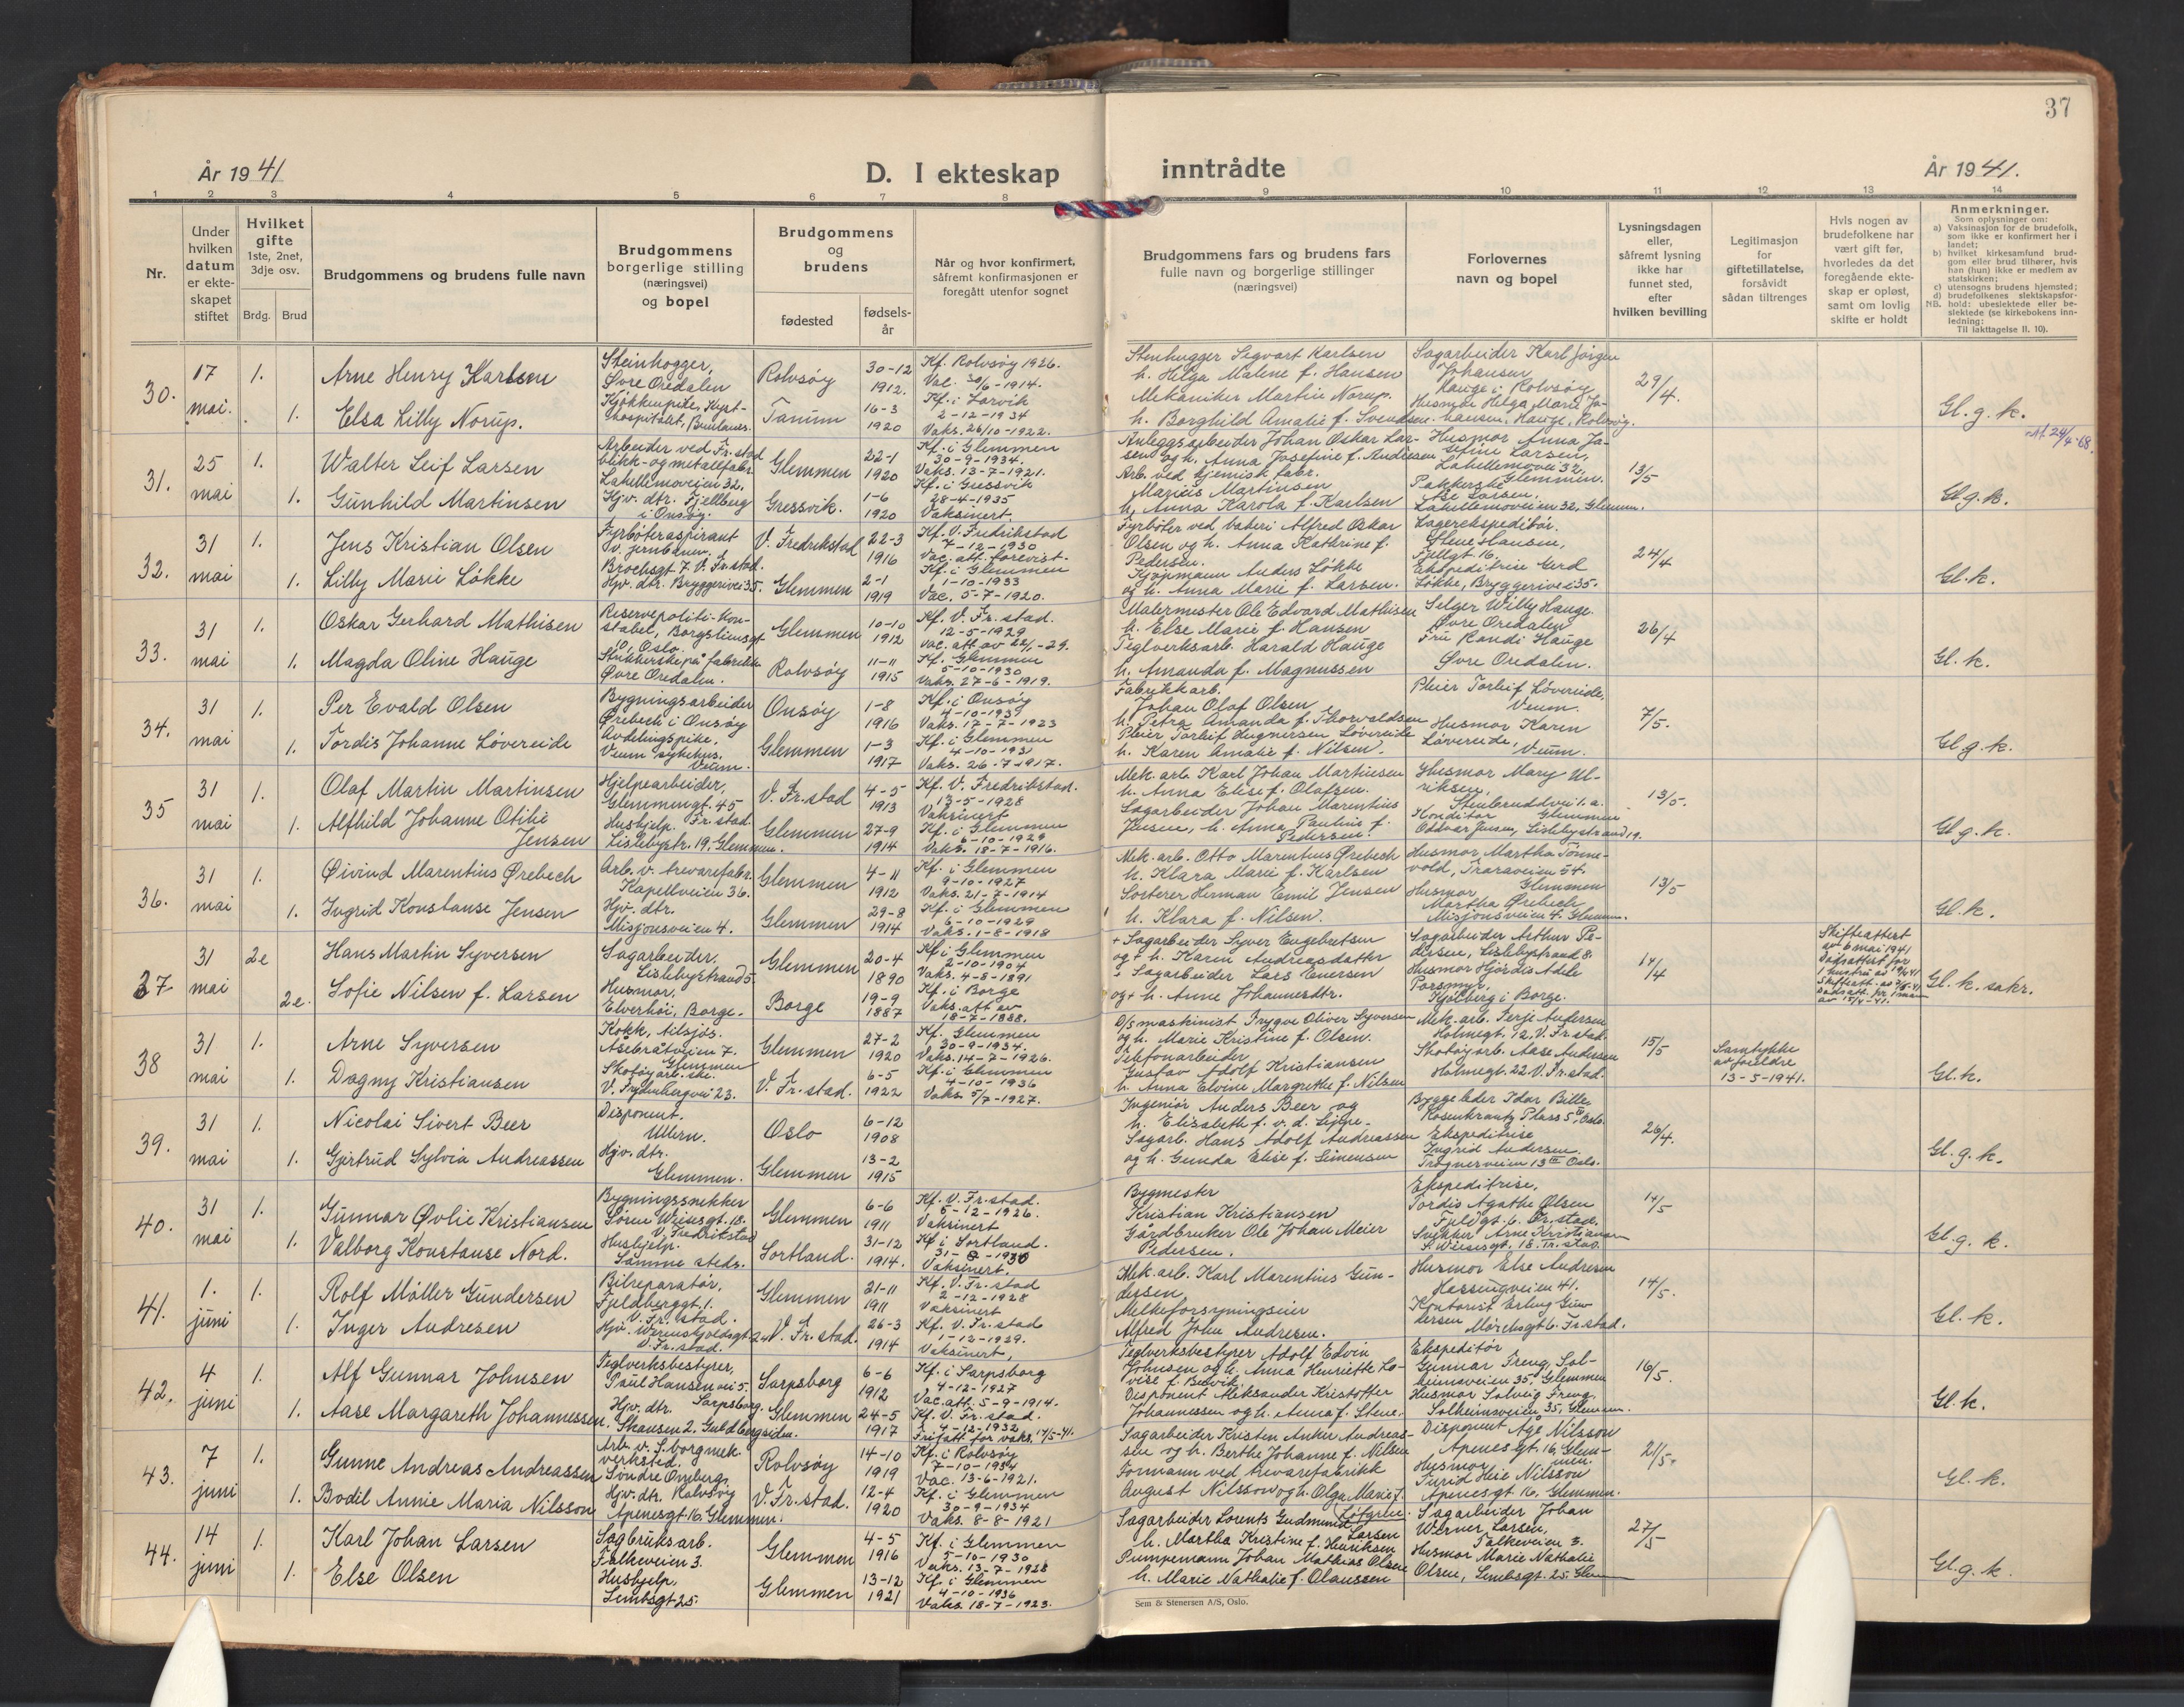 37
År 1941
D. I ekteskap inntrådte
År 1941.
1 2 3 4 5 6 7 8 9 10 11 12 13 14
Nr.
Under hvilken datum er ekteskapet stiftet
Hvilket gifte
1ste, 2net, 3dje osv.
Brdg. Brud
Brudgommens og brudens fulle navn
Brudgommens borgerlige stilling (næringsvei) og bopel
Brudgommens og brudens
fødested
fødsels-år
Når og hvor konfirmert, såfremt konfirmasjonen er foregått utenfor sognet
Brudgommens fars og brudens fars fulle navn og borgerlige stillinger (næringsvei)
Forlovernes navn og bopel
Lysningsdagen eller, såfremt lysning ikke har funnet sted, efter hvilken bevilling
Legitimasjon for giftetillatelse, forsåvidt sådan tiltrenges
Hvis nogen av brudefolkene har vært gift før, hvorledes da det foregående ekteskap er opløst, samt om lovlig skifte er holdt
Anmerkninger.
Som oplysninger om:
a) Vaksinasjon for de brudefolk, som ikke er konfirmert her i landet;
b) hvilket kirkesamfund brudgom eller brud tilhører, hvis han (hun) ikke er medlem av statskirken;
c) utensogns brudens hjemsted;
d) brudefolkenes slektskapsforhold: ubeslektede eller beslektede (se kirkebokens innledning:
NB.
Til Iakttagelse II. 10).
30.
17 mai. 1. Arne Henry Karlsen
Steinhogger, Øvre Oredalen
Rolvsøy 30-12 1912.
Kf. Rolvsøy 1926.
Vac. 30/6-1914.
Stenhugger Segvart Karlsen
h. Helga Malene f. Hansen
Sagarbeider Karl Jørgen Johansen
Hauge i Rolvsøy
29/4
1. Elsa Lilly Norup.
Kjøkkenpike, Kyst-hospitalet, Brunlanes.
Tanum 16-3 1920
Kf. i Larvik
2-12-1934
Vaks. 26/10-1922.
Mekaniker Martin Norup.
h. Borghild Amalie f. Svendsen.
Husmor Helga Marie Johansen, Hauge, Rolvsøy.
Gl. g. k.
Att 24/4-68.
31.
25 mai 1. Walter Leif Larsen
Arbeider ved Fr.stad blikk- og metallfabr.
Lahellemoveien 32.
Glemmen 22-1 1920
Kf. i Glemmen
30-9-1934.
Vaks. 13-7-1921.
Anleggsarbeider Johan Oskar Larsen og h. Anna Josefine f. Andersen
Husmor Anna Josefine Larsen,
Lahellemovei 32, Glemmen.
13/5
1. Gunhild Martinsen
Hjv. dtr. Fjellberg i Onsøy.
Gressvik. 1-6 1920
Kf. i Gressvik
28-4-1935
Vaksinert.
Arb. ved kjemisk fabr.
Marius Martinsen
h. Anna Karola f. Karlsen
Pakkerske Åse Larsen,
Lahellemoveien 32, Glemm.
Gl. g. k.
32.
31 mai 1. Jens Kristian Olsen
Fyrbøteraspirant v. jernbanen.
Brochsgt 7. V. Fr.stad.
V. Fredrikstad 22-3 1916
Kf. V. Fredrikstad
7-12-1930
Vac. att. forevist.
Fyrbøter ved baderi Alfred Oskar Olsen og h. Anna Kathrine f. Pedersen.
Lagerekspeditør. Stene Hansen,
Fjellgt 16.
24/4
1. Lilly Marie Løkke
Hjv. dtr. Bryggerivei 35.
Glemmen 2-1 1919
Kf. i Glemmen
1-10-1933
Vac. 5-7-1920.
Kjøpmann Anders Løkke og h. Anna Marie f. Larsen.
Ekspeditrise Gerd Løkke, Bryggerivei 35.
Gl. k.
33.
31 mai 1. Oskar Gerhard Mathisen
Reservepoliti-konstabel, Borgsliensgt, Oslo.
Glemmen 10-10 1912
Kf. V. Fr.stad.
12-5-1929
Malermester Ole Edvard Mathisen
h. Else Marie f. Hansen
Selger Willy Hauge.
Øvre Oredalen
26/4
1. Magda Oline Hauge
Strikkerske på fabrikk
Øvre Oredalen.
Rolvsøy 11-11 1915
Kf. Glemmen
5-10-1930
Vaks. 27-6-1919.
Teglverksarb. Harald Hauge
h. Amanda f. Magnussen
Fru Randi Hauge
Øvre Oredalen.
Gl. k.
34.
31 mai 1. Per Evald Olsen
Bygningsarbeider
Ørebech i Onsøy
Onsøy 1-8 1916
Kf. i Onsøy
4-10-1931
Vaks. 17-7-1923
Fabrikkarb.
Johan Olaf Olsen
h. Petra Amanda f. Thorvaldsen
Pleier Torleif Løvereide,
Veum.
7/5.
1. Tordis Johanne Løvereide
Avdelingspike.
Veum sykehus. Veum.
Glemmen 1-3 1917
Kf. i Glemmen
4-10-1931
Vaks. 26-7-1917.
h. Karen Amalie f. Nilsen.
Husmor Karen Løvereide, Veum.
Gl. g. k.
35
31 mai 1. Olaf Martin Martinsen
Hjelpearbeider,
Glemmengt. 45 Fr.stad
V. Fr.stad 4-5 1913
Kf. V. Fredrikstad.
13-5-1928
Vaksinert
Mek. arb. Karl Johan Martinsen
h. Anna Elise f. Olafsen.
Husmor Mary Ulriksen,
Glemmen
13/5.
1. Alfhild Johanne Otilie Jensen
Hushjelp.
Lislebystr. 19, Glemmen.
Glemmen 27-9 1914
Kf. i Glemmen
6-10-1929
Vaks. 18-7-1916.
Sagarbeider Johan Marentius Jensen, h. Anna Pauline f. Pedersen.
Konditor
Oddvar Jensen, Lislebystrand 19.
Gl. g. k.
36.
31 mai 1. Øivind Marentius Ørebech
Arb. v. trevarefabr.
Kapellveien 36.
Glemmen 4-11 1912
Kf. i Glemmen
9-10-1927
Vaks. 21-7-1914
Mek. arb. Otto Marentius Ørebech
h. Klara Marie f. Karlsen
Husmor Martha Tønnevold, Traraveien 54. Glemmen
13/5
1. Ingrid Konstanse Jensen
Hjv. dtr.
Misjonsveien 4.
Glemmen 29-8 1914
Kf. i Glemmen
6-10-1929
Vaks. 1-8-1918
Sorterer Herman Emil Jensen
h. Klara f. Nilsen.
Husmor Martha Ørebech
Misjonsveien 4. Glemm.
Gl. k.
37
31 mai 2e Hans Martin Syversen
Sagarbeider.
Lislebystrand 5.
Glemmen 20-4 1890
Kf. i Glemmen
2-10-1904
Vaks. 4-8-1891
+ Sagarbeider Syver Engebretsen og + h. Karin Andreasdatter
Sagarbeider Arthur Pedersen, Lislebystrand 8.
17/4
2e. Sofie Nilsen f. Larsen
Husmor.
Elverhøi, Borge.
Borge 19-9 1887
Kf. i Borge
Vaks. att av
18-7-1888.
+ Sagarbeider Lars Enersen
og + h. Anne Johannesdtr.
Husmor Hjørdis Adele Porsmyr,
Kjølberg i Borge.
Skifteattest av 6 mai 1941
Dødsattest for 1 hustru av
Gl. k. sakr.
38
31 mai 1. Arne Syversen
Kokk, tilsjøs.
Åsebråtveien 7. Glemmen
Glemmen 27-2 1920
Kf. Glemmen
30-9-1934.
Vaks. 14-7-1926.
D/S maskinist Trygve Oliver Syversen
og h. Marie Kristine f. Olsen.
Mek. arb. Terje Andersen
Holmegt. 12, V. Fr.stad.
15/5
Samtykke av foreldre
13-5-1941.
1. Dagny Kristiansen
Skotøyarb.ske.
V. Frydenbergvei 23.
V. Fr.stad. 6-5 1922
Kf. i Glemmen
4-10-1936
Vaks. 5/7-1927.
Telefonarbeider
Gustav Adolf Kristiansen
h. Anna Elvine Margrethe f. Nilsen
Skotøyarb. Aase Andersen
Holmegt. 22 V. Fr.stad.
Gl. k.
39.
31 mai 1. Nicolai Sivert Beer
Disponent.
Ullern.
Oslo 6-12 1908
Ingeniør Anders Beer og
h. Elisabeth f. v. d. Lippe.
Byggeleder Idar Bille
Rosenkrantz Plass 5 III, Oslo.
26/4.
1. Gjertrud Sylvia Andreassen
Hjv. dtr.
Glemmen.
Glemmen 13-2 1915
Sagarb. Hans Adolf Andreassen
og h. Gunda Elise f. Simensen
Ekspeditrise
Ingrid Andersen
Frognerveien 13 III Oslo.
Gl. g. k.
40.
31 mai 1. Gunnar Øvlie Kristiansen
Bygningssnekker
Søren Wiisesgt. 18. V. Fredrikstad
Glemmen 6-6 1911
Kf. V. Fr.stad.
5-12-1926.
Vaksinert
Bygmester
Kristian Kristiansen
Ekspeditrise,
Tordis Agathe Olsen
Fjeldgt. 6. Fr.stad.
14/5
1. Valborg Konstanse Nord.
Hushjelp.
Samme steds.
Sortland. 31-12 1914.
Kf i Sortland.
31-8-1930
Vaksinert.
Gårdbruker Ole Johan Meier Pedersen.
Snekker Arne Kristiansen
S. Wiisesgt. 18. Fr.stad.
Gl. g. k.
41.
1. juni 1. Rolf Møller Gundersen
Bilreparatør,
Fjeldberggt. 1. V. Fr.stad.
Glemmen 21-11 1911
Kf. V. Fr.stad
2-12-1928
Vaksinert
Mek. arb. Karl Marentius Gundersen,
Husmor Else Andresen
Hassingveien 41.
14/5.
1. Inger Andresen
Hjv. Wernskjoldsgt 2
V. Fr.stad.
V. Fr.stad. 26-3 1914
Kf. V. Fr.stad
1-12-1929.
Vaksinert,
Melkeforsyningseier
Alfred John Andresen.
Kontorist Erling Gundersen
Mørchsgt 6. Fr.stad.
Gl. k.
42.
4 juni 1. Alf Gunnar Johnsen
Teglverksbestyrer,
Paul Hansen vei 5. Sarpsborg
Sarpsborg 6-6 1912
Kf. i Sarpsborg
4-12-1927
Vac. att. 5-9-1914.
Teglverksbestyrer Adolf Edvin Johnsen og h. Anna Henriette Lovise f. Bævik.
Ekspeditør
Gunnar Freng, Solheimsveien 35, Glemmen
16/5.
1. Aase Margareth Johannessen.
Hjv. dtr.
Skansen 2. Guldbergsiden.
Glemmen 24-5 1917
Kf. V. Fr.stad.
4-12-1932
Frifatt for vaks. 14/5-41.
Disponent Aleksander Kristoffer Johannessen og h. Anna f. Stene.
Husmor Solveig Freng,
Solheimsveien 35, Glemmen.
Gl. k.
43.
7 juni 1. Gunne Andreas Andreassen
Arb. v. S.borg mek. verksted.
Søndre Omberg, Rolvsøy
Rolvsøy 14-10 1919
Kf. i Rolvsøy
7-10-1934
Vac. 13-6-1921.
Sagarbeider Kristen Anker Andreassen og h. Berthe Johanne f. Nilsen
Disponent Åge Nilsson
Apenesgt. 16, Glemmen.
21/5.
1. Bodil Annie Maria Nilsson
Hjv. dtr.
Apenesgt 16. Glemmen.
V. Fr.stad. 12-4 1920
Kf. i Glemmen
30-9-1934
Vaks. 8-8-1921
Formann ved trevarefabrikk
August Nilsson og h. Olga Marie f. Løfgren.
Husmor
Turid Heie Nilsson
Apenesgt 16. Glemmen.
Gl. k.
44.
14 juni 1. Karl Johan Larsen
Sagbruksarb.
Falkeveien 3.
Glemmen 4-5 1916
Kf. i Glemmen
5-10-1930
Vaks. 13-7-1928
Sagarbeider Lorents Gudmund Larsen
h. Martha Kristine f. Henriksen
Sagarbeider Johan Werner Larsen,
Falkeveien 3.
27/5
1. Else Olsen
Hushjelp,
Lembsgt 25.
Glemmen 13-12 1921
Kf. i Glemmen
4-10-1936
Vaks. 18-7-1923.
Pumpemann Johan Mathias Olsen
h. Marie Nathalie f. Olaussen
Husmor Marie Nathalie Olsen, Lembsgt. 25. Glem
Gl. g. k.
Sem & Stenersen A/S, Oslo.